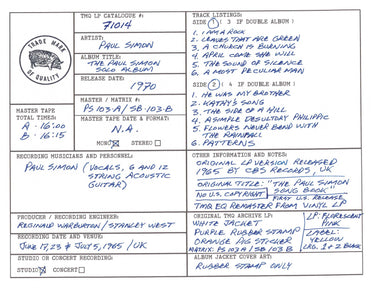 TMQ LP CATALOGUE #:
71014
TRADE MARK
OF QUALITY
ARTIST:
PAUL SIMON
ALBUM TITLE:
THE PAUL SIMON
SOLO ALBUM
RELEASE DATE:
1970
MASTER TAPE
TOTAL TIMES:
A - 16:00
B - 16:15
MASTER / MATRIX #:
PS 103 A / SB 103-B
MASTER TAPE DATE & FORMAT:
N.A.
MONO STEREO
TRACK LISTINGS:
SIDE 1 ( 3 IF DOUBLE ALBUM )
1. I AM A ROCK
2. LEAVES THAT ARE GREEN
3. A CHURCH IS BURNING
4. APRIL COME SHE WILL
5. THE SOUND OF SILENCE
6. A MOST PECULIAR MAN
SIDE 2 ( 4 IF DOUBLE ALBUM )
1. HE WAS MY BROTHER
2. KATHY'S SONG
3. THE SIDE OF A HILL
4. A SIMPLE DESULTORY PHILIPPIC
5. FLOWERS NEVER BEND WITH
THE RAINFALL
6. PATTERNS
RECORDING MUSICIANS AND PERSONNEL:
PAUL SIMON (VOCALS, 6 AND 12
STRING ACOUSTIC
GUITAR)
OTHER INFORMATION AND NOTES:
ORIGINAL LP VERSION RELEASED
1965 BY CBS RECORDS, UK
ORIGINAL TITLE: "THE PAUL SIMON
SONG BOOK"
NO U.S. COPYRIGHT FIRST U.S. RELEASE
TMQ EQ REMASTER FROM VINYL LP
PRODUCER / RECORDING ENGINEER:
REGINALD WARBURTON / STANLEY WEST
RECORDING DATE AND VENUE:
JUNE 17, 23 & JULY 5, 1965 / UK
STUDIO OR CONCERT RECORDING:
STUDIO CONCERT
ORIGINAL TMQ ARCHIVE LP:
WHITE JACKET
PURPLE RUBBER STAMP
ORANGE PIG STICKER
MATRIX: PS 103 A / SB 103-B
LP: FLORESCENT
PINK
LABEL:
YELLOW
LRG. 1 & 2 BLACK
ALBUM JACKET COVER ART:
RUBBER STAMP ONLY